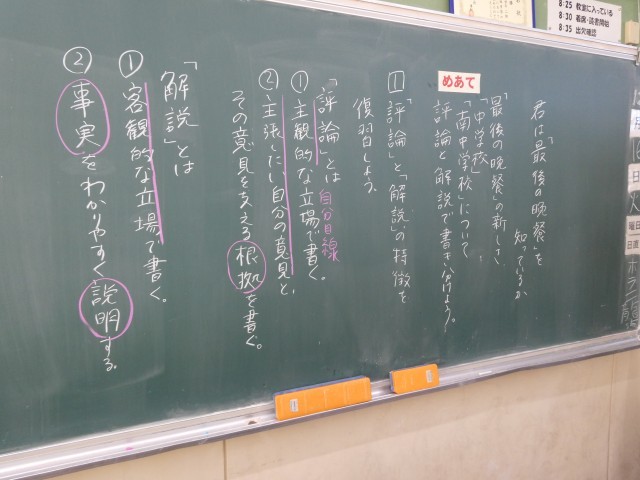 君は「最後の晩餐」を
知っているか
「最後の晩餐」の新しさ
「中学校」
「南中学校」について
評論と解説で書き分けよう!
めあて
1 「評論」と「解説」の特徴を
復習しよう
「評論」とは
自分目線
①主観的な立場で書く。
②主張したい自分の意見と、
その意見を支える根拠を書く。
「解説」とは
①客観的な立場で書く。
②事実をわかりやすく説明する。
8:25 教室に入っている
8:30 着席・読書開始
8:35 出欠確認
月
日
曜日
日直